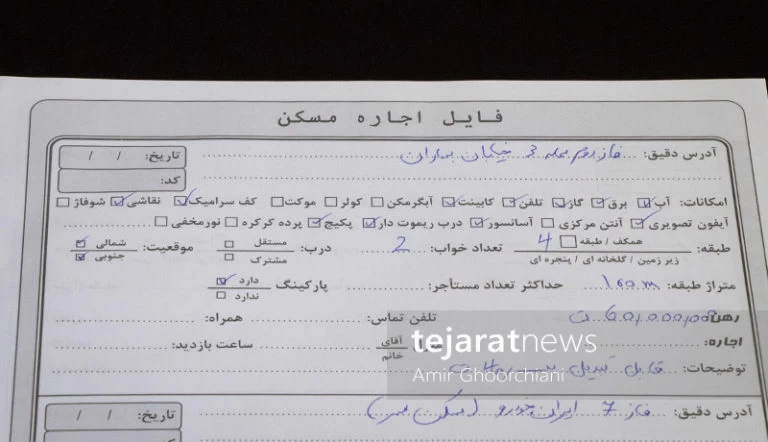 فایل اجاره مسکن
آدرس دقیق: فاز دوم محله 3 خیابان بهاران
تاریخ: / /
کد:
امکانات: آب برق گاز تلفن کابینت آبگرمکن کولر موکت کف سرامیک نقاشی شوفاژ
آیفون تصویری آنتن مرکزی آسانسور درب ریموت دار پکیج پرده کرکره نورمخفی
طبقه: همکف / طبقه 4 زیر زمین / گلخانه ای / پنجره ای تعداد خواب: 2 درب: مستقل مشترک موقعیت: شمالی جنوبی
متراژ طبقه: 100 m حداکثر تعداد مستأجر: پارکینگ دارد ندارد
رهن: ت تلفن تماس: همراه:
اجاره: آقای خانم ساعت بازدید:
توضیحات: قابل تبدیل
tejaratnews
Amir Ghoorchiani
آدرس دقیق: فاز 7 ایران خودرو (مسکن مهر)
تاریخ: / /